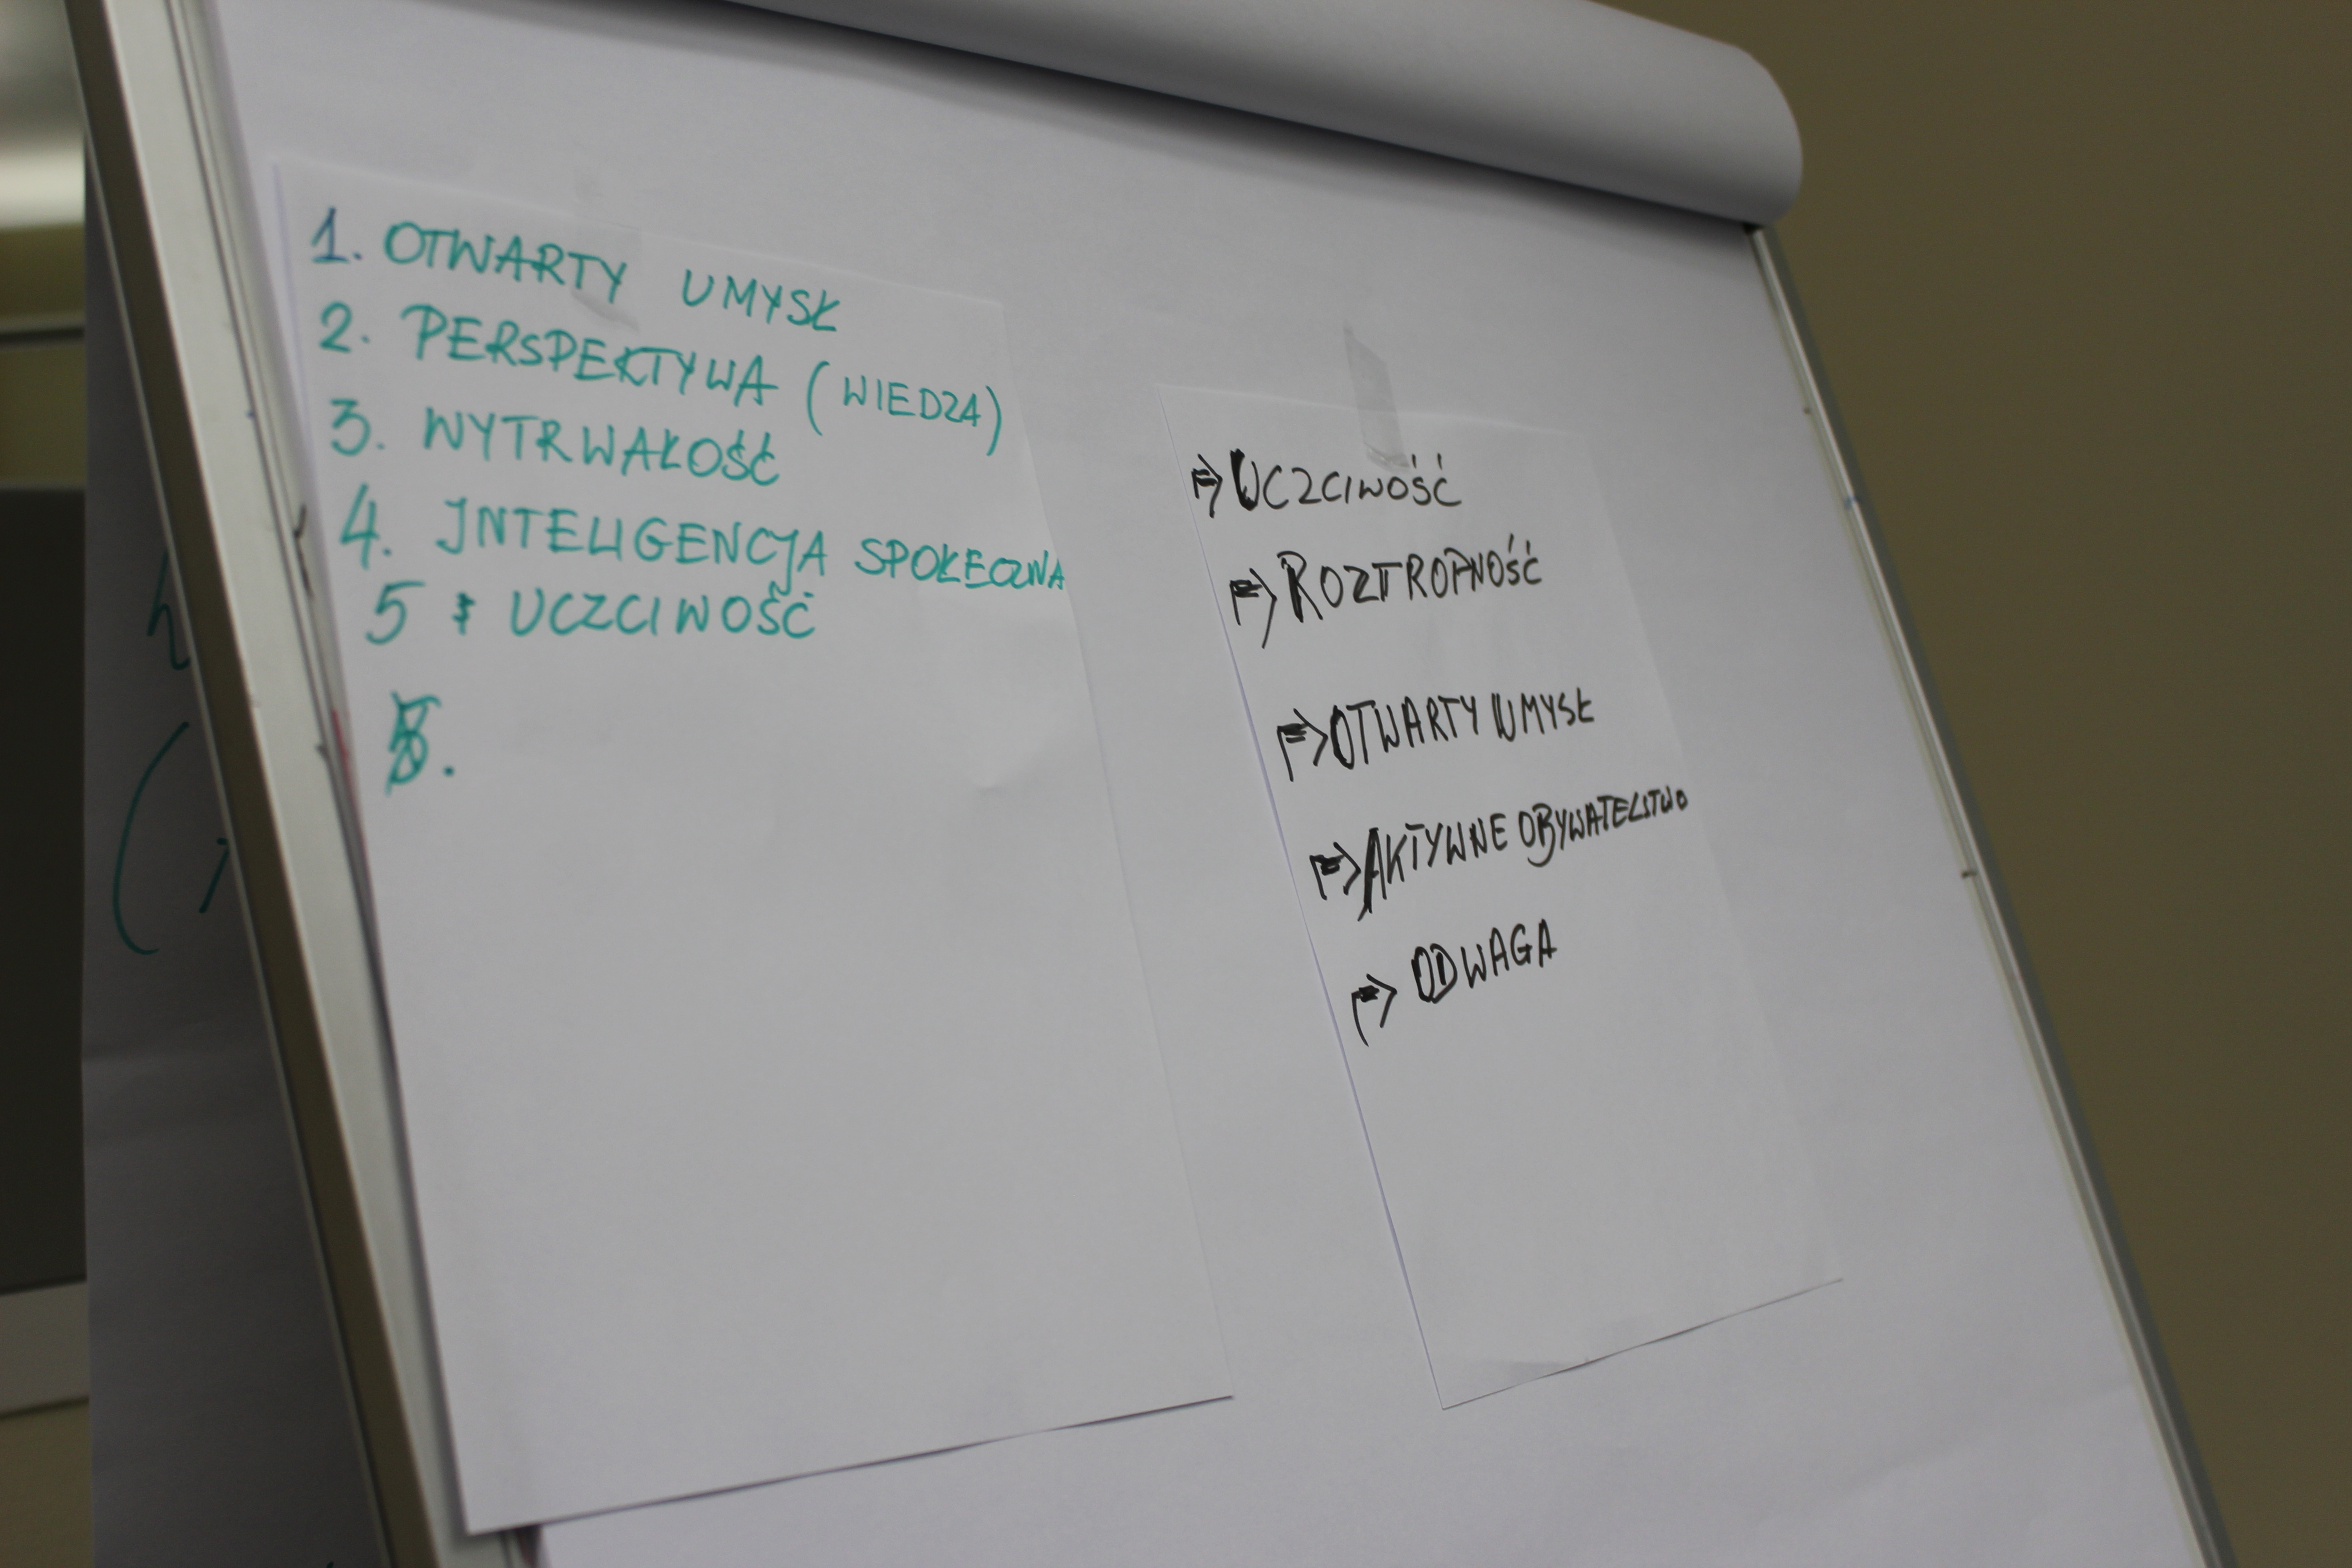 1. OTWARTY UMYSŁ
2. PERSPEKTYWA (WIEDZA)
3. WYTRWAŁOŚĆ
4. INTELIGENCJA SPOŁECZNA
5 UCZCIWOŚĆ
⇒ UCZCIWOŚĆ
⇒ ROZTROPNOŚĆ
⇒ OTWARTY UMYSŁ
⇒ AKTYWNE OBYWATELSTWO
⇒ ODWAGA